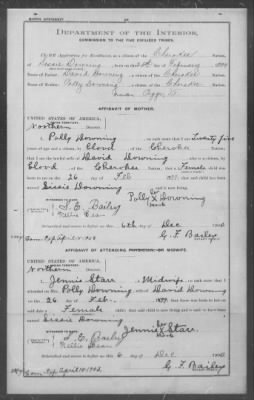 DEPARTMENT OF THE INTERIOR,
COMMISSION TO THE FIVE CIVILIZED TRIBES.
IN RE Application for Enrollment, as a citizen of the Cherokee Nation,
of Sissie Downing, born on the day of February, 1899
Name of Father: David Downing, a citizen of the Cherokee Nation.
Name of Mother: Polly Downing, a citizen of the Cherokee Nation.
AFFIDAVIT OF MOTHER.
UNITED STATES OF AMERICA,
Northern District.
I, Polly Downing, on oath state that I am Twenty five
years of age and a citizen, by Blood, of the Cherokee Nation;
that I am the lawful wife of David Downing, who is a citizen, by
Blood, of the Cherokee Nation; that a Female child was
born to me on the 26 day of Feb 1899; that said child has been
named Sissie Downing, and is now living.
Polly x Downing
S. E. Bailey
Subscribed and sworn to before me this 6th day of Dec
G. F. Bailey
AFFIDAVIT OF ATTENDING PHYSICIAN OR MIDWIFE.
UNITED STATES OF AMERICA,
Northern District.
I, Jennie Starr, a Midwife, on oath state that I
attended on Polly Downing, wife of David Downing
on the 26 day of Feb. 1899; that there was born to her on
said date a Female child; that said child is now living and is said to have been
named Sissie Downing
Jennie x Starr
S. E. Bailey
Subscribed and sworn to before me this 6 day of Dec
G. F. Bailey